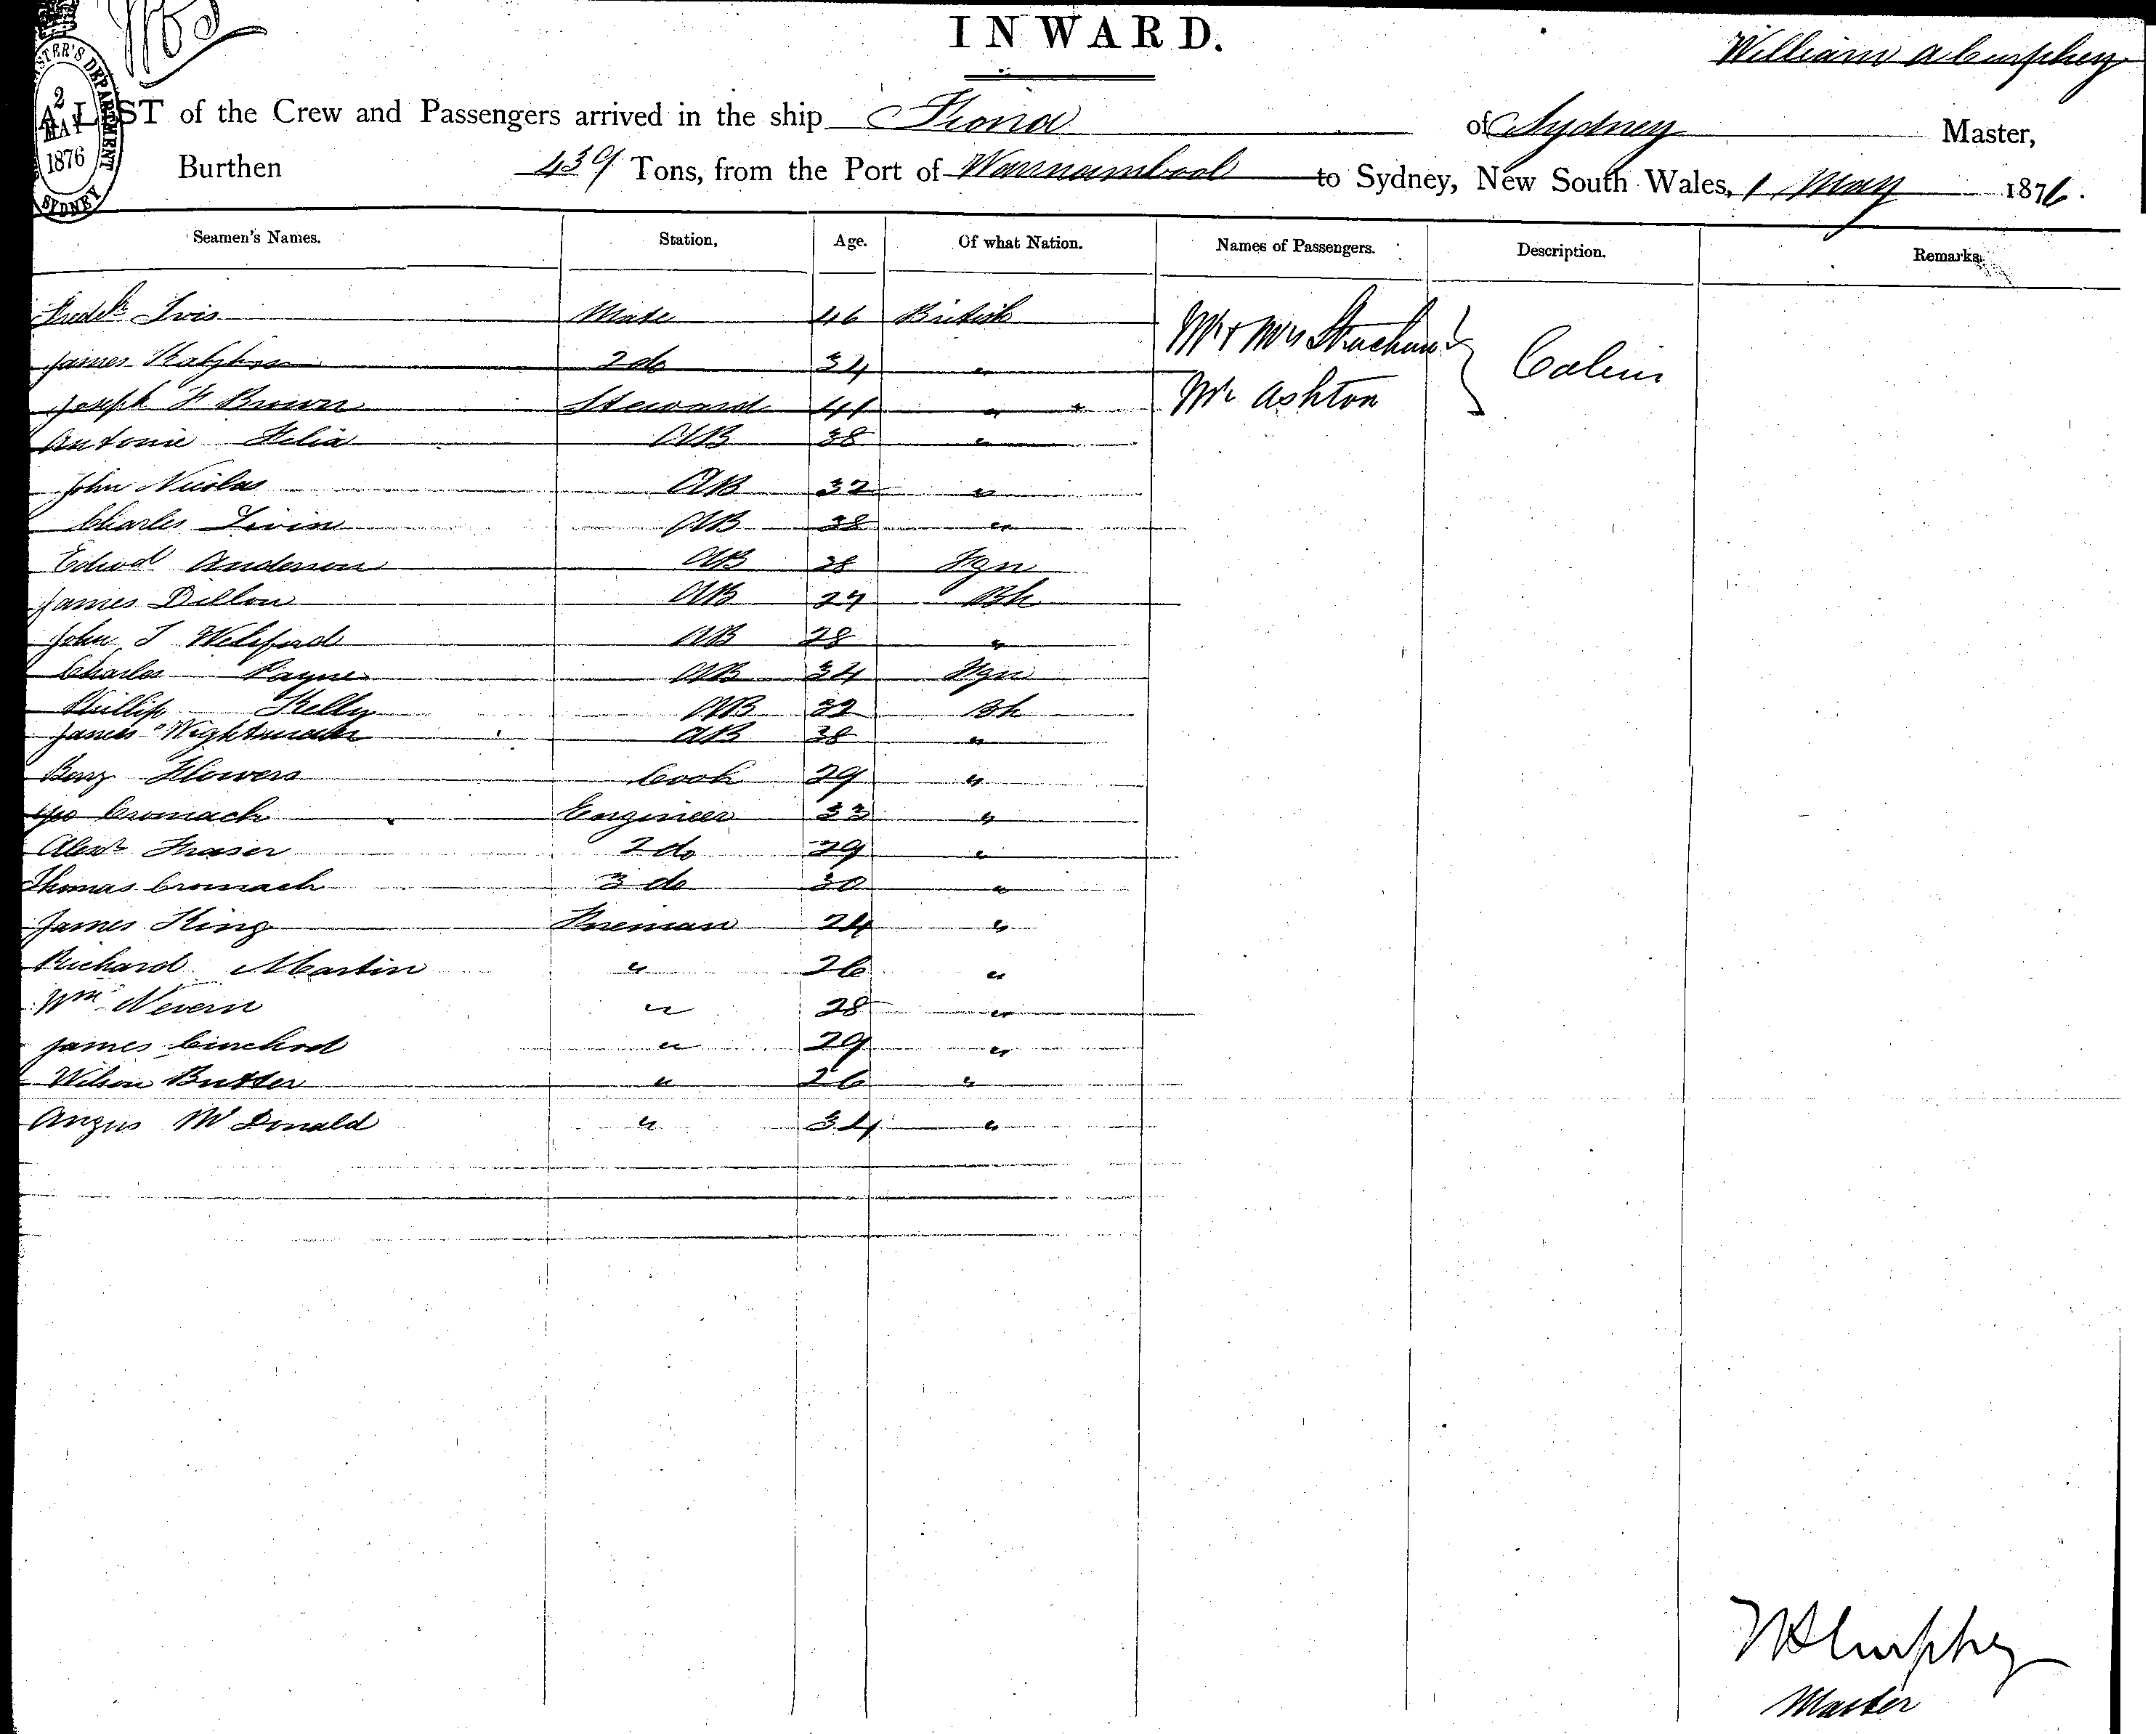 INWARD.
William A Curphey
A LIST of the Crew and Passengers arrived in the ship Fiona of Sydney Master,
2 MAY 1876 SYDNEY
Burthen 439 Tons, from the Port of Warrnambool to Sydney, New South Wales, 1 May 1876.
Seamen's Names. Station, Age. Of what Nation. Names of Passengers. Description. Remarks.
Fredk Ivis Mate 46 British Mr & Mrs Strachan
James 2 do 34 " Cabin
Joseph H Brown Steward 41 " Mr Ashton
Antonie Felia AB 38 "
John Nicolas AB 32 "
Charles AB 38 "
Edwd Anderson AB 28 Fgn
James Dillon AB 27 Bh
John J Welsford AB 28 "
Charles Payne AB 34 Fgn
Phillip Kelly AB 32 Bh
James Wightman AB 38 "
Benj Flowers Cook 29 "
Geo Cromack Engineer 33 "
Alexr Fraser 2 do 29 "
Thomas Cromack 3 do 30 "
James King Fireman 24 "
Richard Martin " 26 "
Wm Nevern " 28 "
James " 29 "
Wilson Butter " 26 "
Angus McDonald " 34 "
WA Curphey
Master